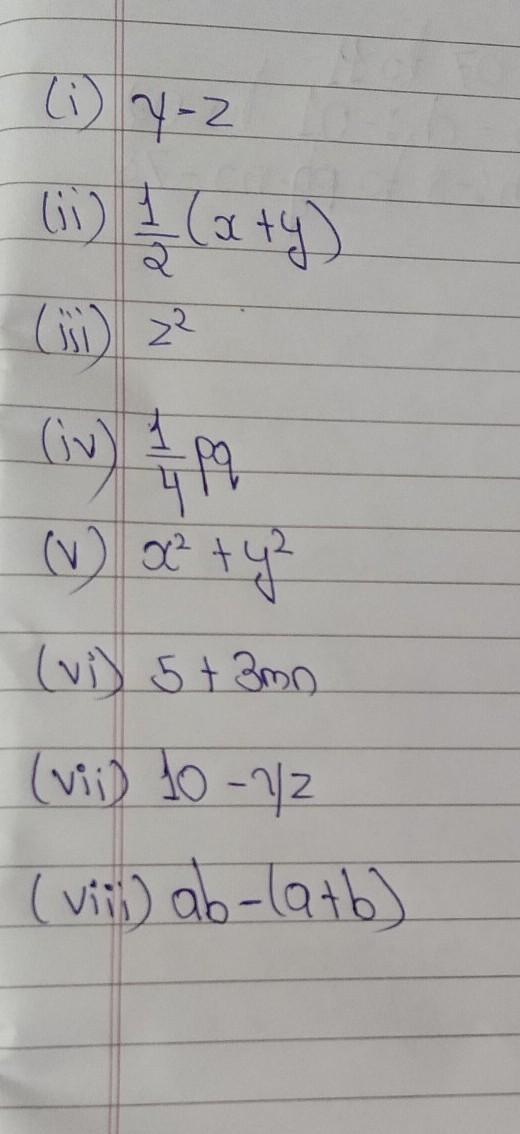 (i) y-z
(ii) 1/2 (x+y)
(iii) z²
(iv) 1/4 pq
(v) x² + y²
(vi) 5 + 3mn
(vii) 10 - yz
(viii) ab-(a+b)